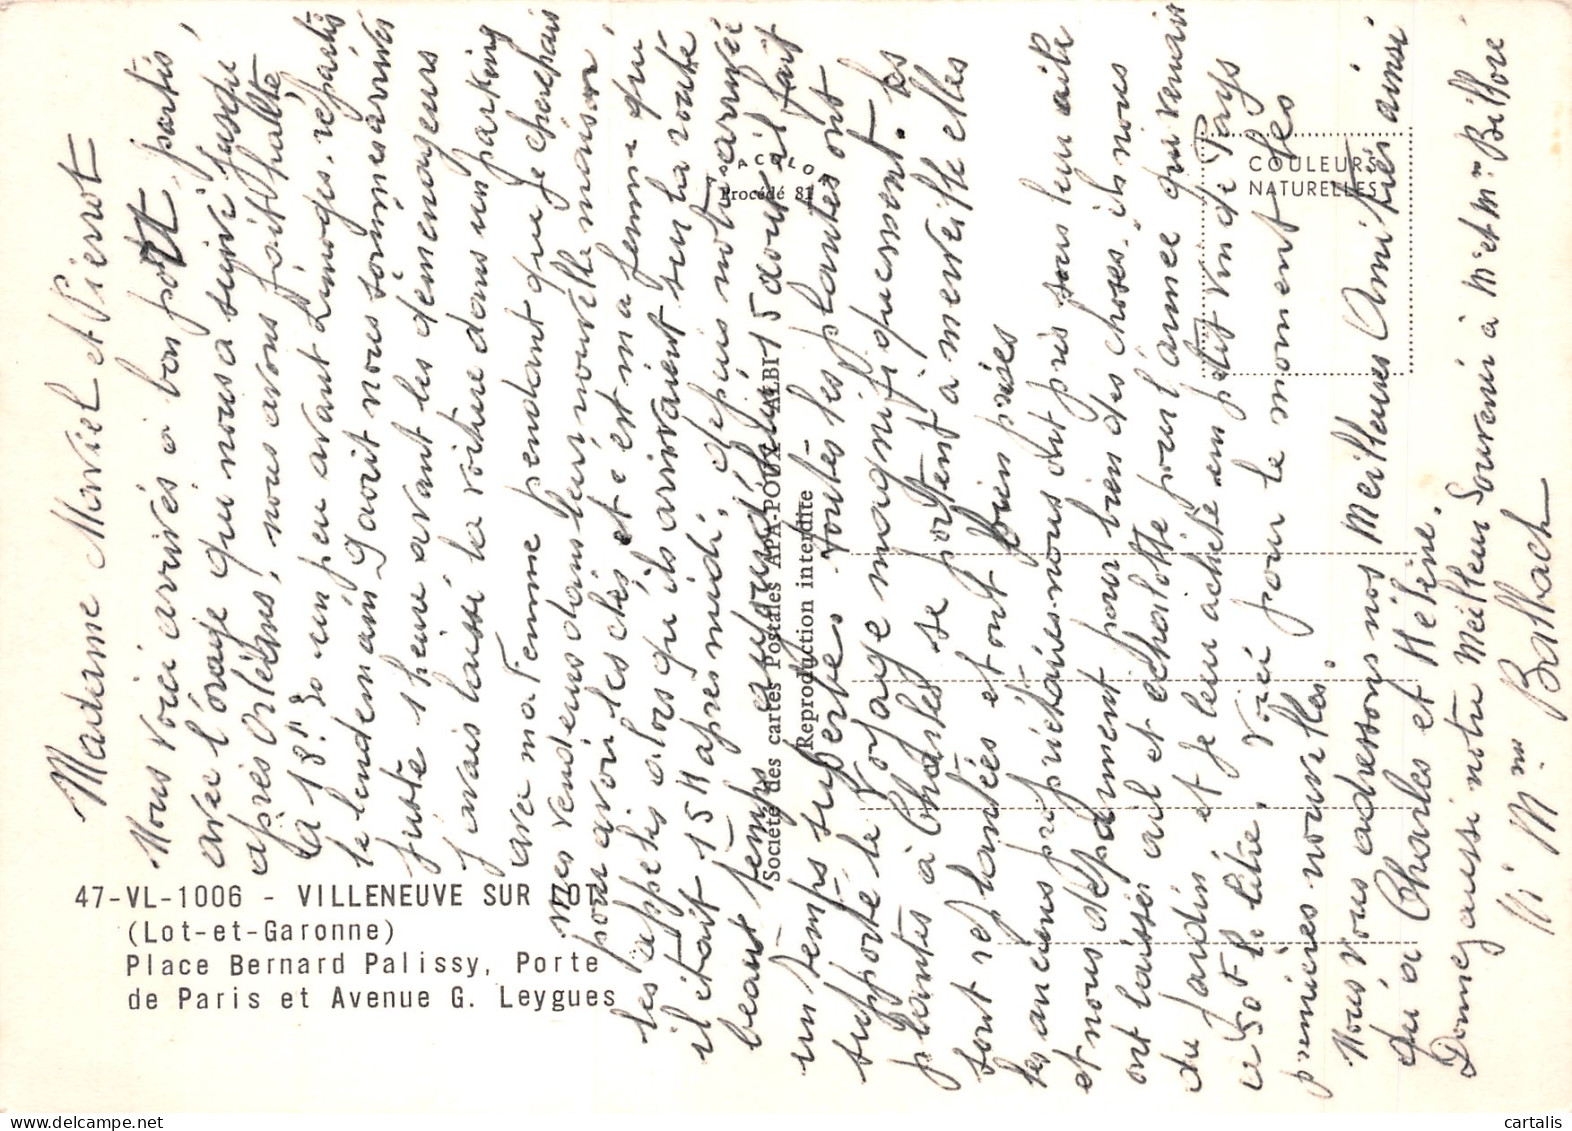 Madame Moviel et Pierrot
Nous voici arrivés à bon port, partis
avec l'orage qui nous a suivi jusqu'
après Orléans, nous avons fait halte
a 18h 30 un peu avant Limoges, répartis
le lendemain Gavoit nous sommes arrivés
juste 1 heure avant les déménageurs
j'avais laissé la voiture dans un parking
avec ma Femme pendant que je cherchais
mes vendeurs dans leur nouvelle maison
pour avoir les clés et c'est ma femme qui
les appelis alors qu'ils arrivaient sur la route
il était 15 H après midi, depuis notre arrivée
beau temps aujourd'hui 15 août il fait
un temps superbe. Toutes les plantes ont
supporté le voyage magnifiquement. les
plantes à Charles se portent à merveille elles
sont replantées et ont bien prises
les anciens propriétaires nous ont près sous leur aile
et nous dépannent pour bien des choses, ils nous
ont laissé ail et échalotte pour l'année qui venait
du jardin et je leur acheté un petit vin de Pays
a 50 F le litre. Voici pour le moment les
premières nouvelles.
Nous vous adressons nos Meilleures Amitiés ainsi
qu'à Charles et Helène.
Donnez aussi notre Meilleur Souvenir à Mr et Mme Billore
Mr Mme Balbach
47-VL-1006 - VILLENEUVE SUR LOT
(Lot-et-Garonne)
Place Bernard Palissy, Porte
de Paris et Avenue G. Leygues
Société des cartes Postales APA-POUX - ALBI
Reproduction interdite
Procédé 81
COULEURS
NATURELLES
cartalis